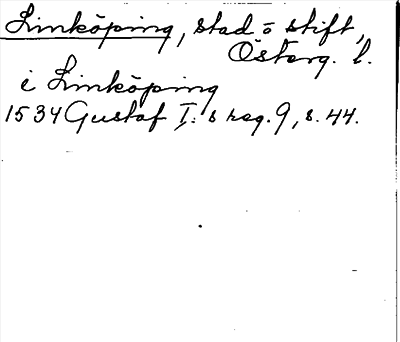 Linköping, stad o stift,
Österg. l.
i Linköping
1534 Gustaf I:s reg. 9, s. 44.